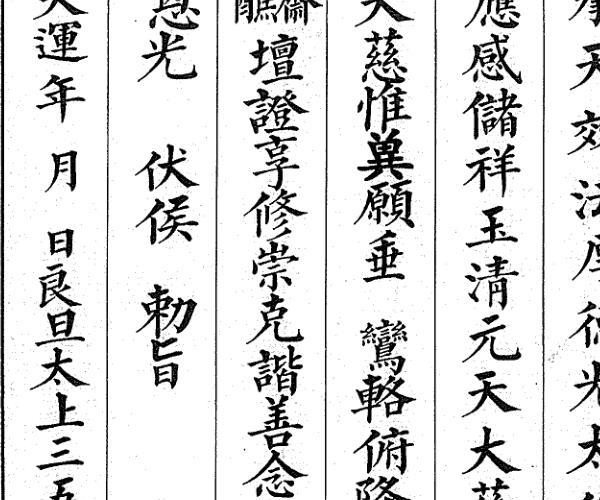 天效法厚德光太
應感儲祥玉清元天大慈
大慈惟兾願垂 鸞輅俯降
齋醮壇證享修崇克諧善念
恩光 伏候 勅旨
天運年 月 日良旦太上三五